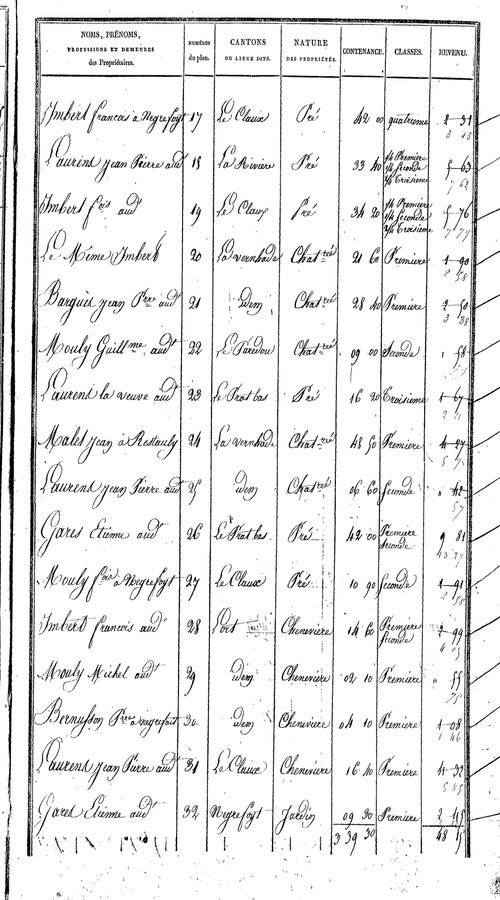 NOMS, PRÉNOMS, PROFESSIONS ET DEMEURES des Propriétaires. NUMÉROS du plan. CANTONS OU LIEUX DITS. NATURE DES PROPRIÉTÉS. CONTENANCE. CLASSES. REVENU.
Imbert francois à Negrefoyt 17 Le Claux Pré 42 00 quatrieme 2 31
3 13
Laurens jean Pierre aud^t 18 La Rivière Pré 33 40 1/4 Premiere 1/4 Seconde 2/4 Troisieme 5 63
7 62
Imbert f^ois aud^t 19 Le Claux Pré 34 20 1/4 Premiere 1/4 Seconde 2/4 Troisieme 5 76
7 79
Le Même Imbert 20 La vernhade Chat^ré 21 60 Premiere 1 90
2 58
Bargues jean P^rre aud^t 21 idem Chat^ré 28 40 Premiere 2 50
3 38
Mouly Guill^me aud^t 22 Le Paredou Chat^ré 09 00 Seconde 58
Laurens la veuve aud^t 23 Le Prat bas Pré 16 20 Troisieme 1 67
Malet jean à Restauly 24 La vernhade Chat^ré 48 50 Premiere 4 27
5 7
Laurens jean Pierre aud^t 25 idem Chat^ré 06 60 Seconde 42
57
Gares Etienne aud^t 26 Le Prat bas Pré 42 00 Premiere Seconde 9 81
13 27
Mouly f^ois à Negrefoyt 27 Le Claux Pré 10 90 Seconde 1 91
2 58
Imbert francois aud^t 28 Lort Cheneviere 14 60 Premiere Seconde 2 99
4 05
Mouly Michel aud^t 29 idem Cheneviere 02 10 Premiere 55
75
Bernusson P^rre à negrefoit 30 idem Cheneviere 04 10 Premiere 1 08
1 46
Laurens jean Pierre aud^t 31 Le Claux Cheneviere 16 40 Premiere 4 32
5 85
Gares Etienne aud^t 32 Negrefoyt Jardin 09 30 Premiere 2 45
3 39 30 48 15